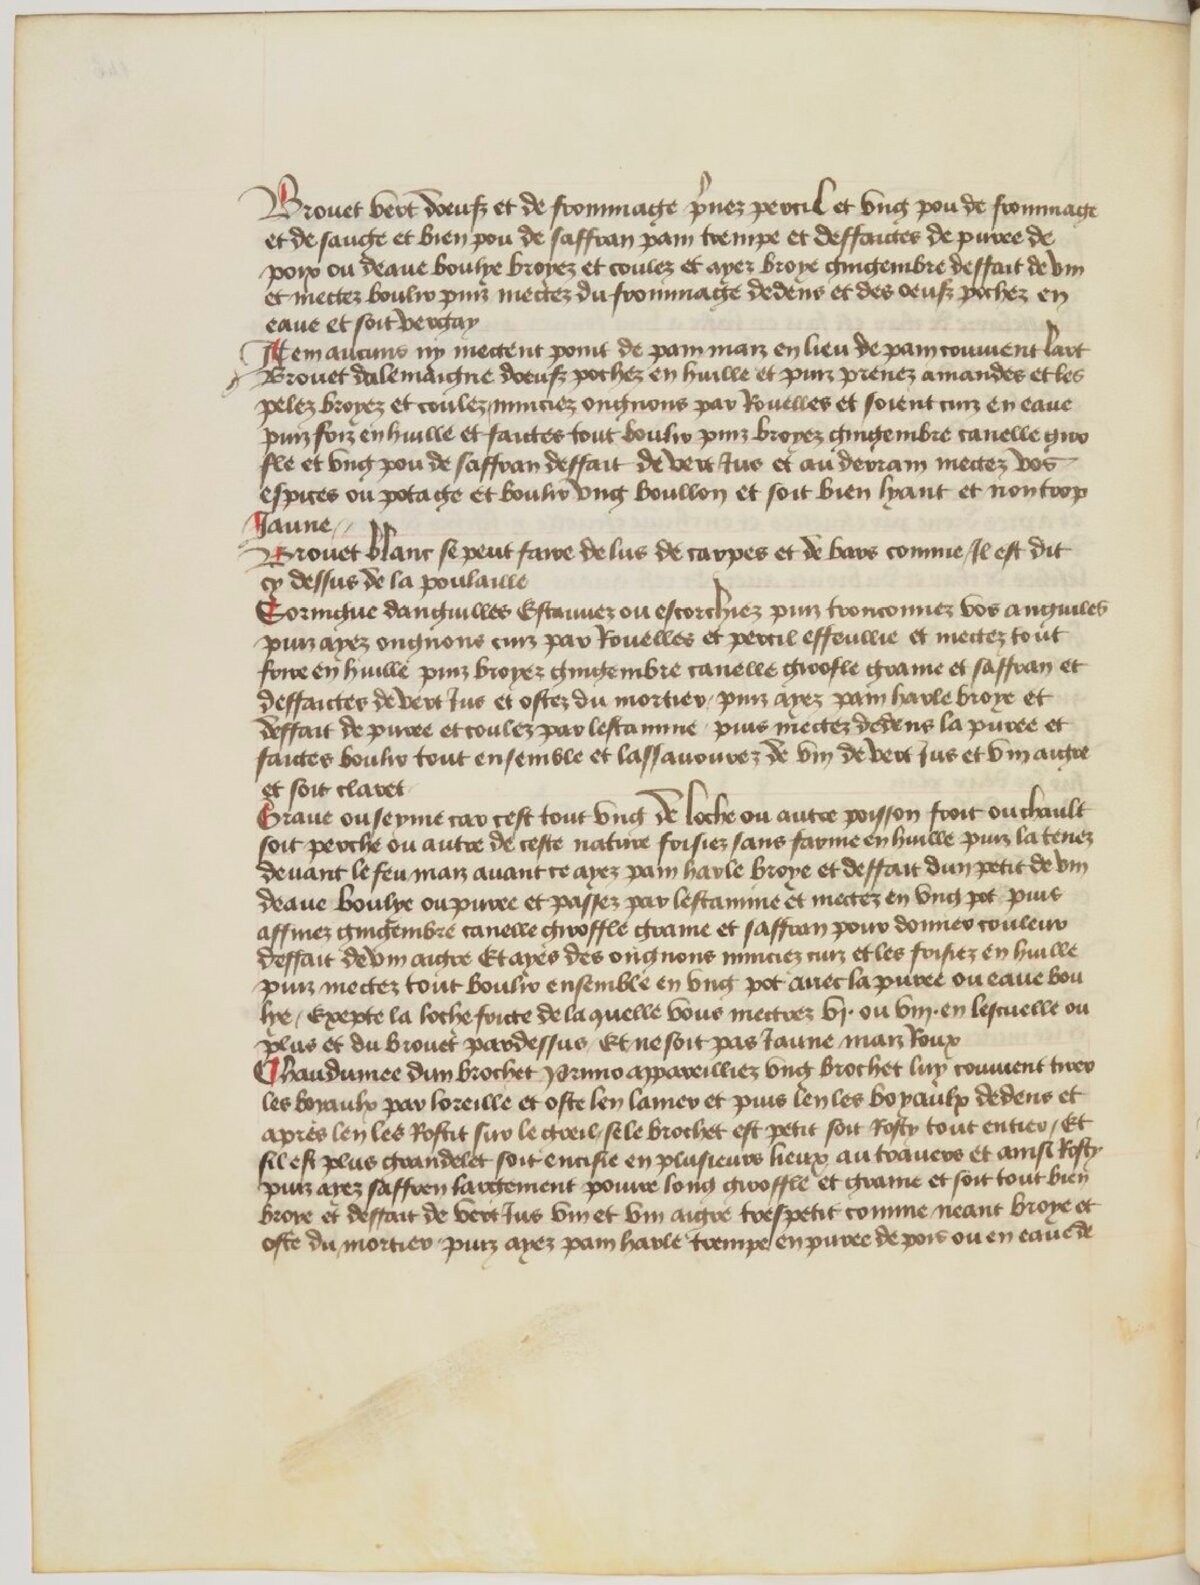 Brouet vert doeufz et de frommage prnez percil et ung pou de frommage
et de sauge et bien pou de saffran pain trempe et deffaictes de puree de
poix ou deaue boulye broyez et coulez et ayez broye gingembre deffait de vin
et mectez boulir puiz mectez du frommage dedens et des oeufz pochez en
eaue et soit vergay
Item aucuns ny mectent point de pain maiz en lieu de pain couvient lart
Brouet dalemaigne doeufz pochez en huille et puiz prenez amandes et les
pelez broyez et coulez minciez ongnons par Rouelles et soient cuiz en eaue
puiz friz en huille et faictes tout boulir puiz broyez gingembre canelle giro
fle et ung pou de saffran deffait de vert Jus et au derrain mectez vos
espices ou potage et boulir ung boullon et soit bien lyant et non trop
Jaune
Brouet blanc se peut faire de lus de carpes et de bars comme Il est dit
cy dessus de la poulaille
Soringue danguilles Estauvez ou escorchiez puiz tronconnez vos anguiles
puiz ayez ongnons cuiz par Rouelles et percil effeullie et mectez tout
frire en huille puiz broyez gingembre canelle giroofle graine et saffran et
deffaictes de vert Jus et ostez du mortier puiz ayez pain harle broye et
deffait de puree et coulez par lestamine puis mectez dedens la puree et
faictes boulir tout ensemble et lassavourez de vin de vert Jus et vin aigre
et soit claret
Grave ou seyme car cest tout ung de loche ou autre poisson froit ou chault
soit perche ou autre de ceste nature frisiez sans farine en huille puiz la tenez
devant le feu maiz avant ce ayez pain harle broye et deffait dun petit de vin
deaue boulye ou puree et passez par lestamine et mectez en ung pot puis
affinez gingembre canelle giroffle graine et saffran pour donner couleur
deffait de vin aigre Et ayes des ongnons minciez cuiz et les frisiez en huille
puiz mectez tout boulir ensemble en ung pot avec la puree ou eaue bou
lye Exepte la loche fricte de la quelle vous mectrez vj. ou viij. en lescuelle ou
plus et du brouet pardessus Et ne soit pas Jaune maiz Roux
Chaudumee dun brochet Primo appareilliez ung brochet luy couvient tirer
les boyaulx par loreille et oste len lamer et puis len les boyaulx dedens et
apres len les Rostit sur le greil se le brochet est petit soit Rosty tout entier Et
sil est plus grandelet soit encisie en plusieurs lieux au travers et ainsi Rosty
puiz ayez saffren largement poivre long giroffle et graine et soit tout bien
broye et deffait de vert Jus vin et vin aigre trespetit comme neant broye et
oste du mortier puiz ayez pain harle trempe en puree de pois ou en eaue de